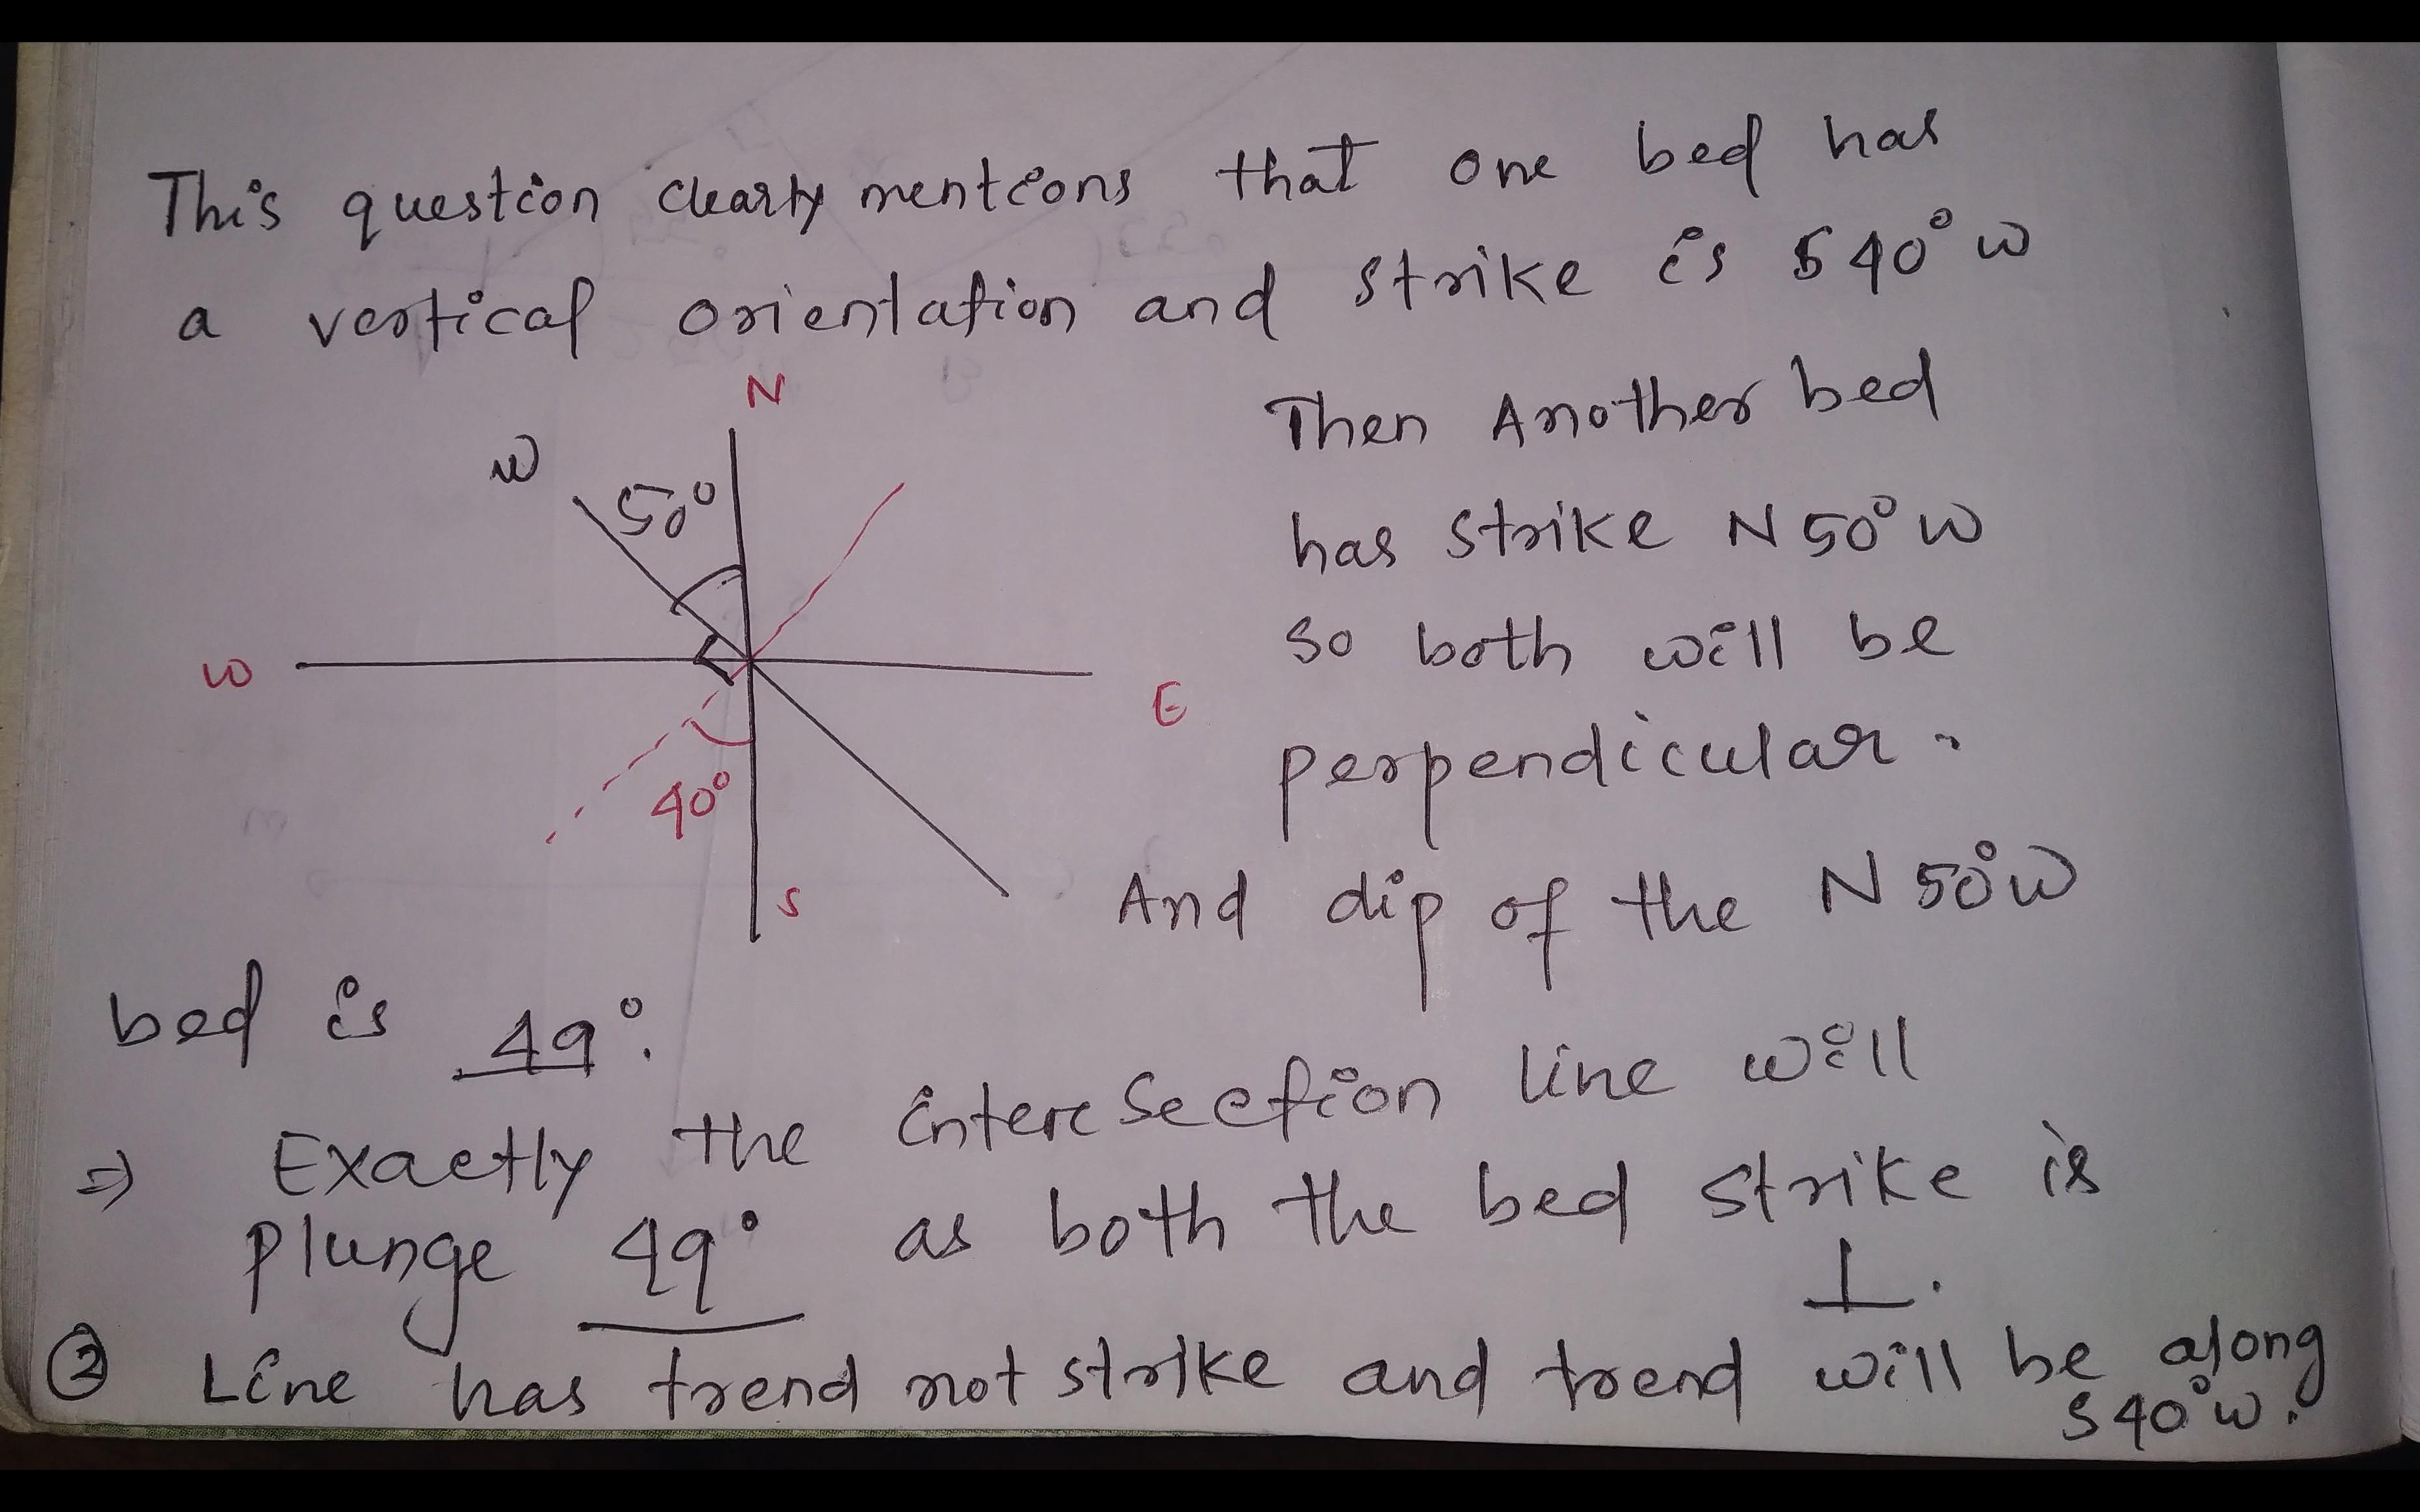 This question clearly mentions that one bed has
a vertical orientation and strike is S 40° W
N
W
50°
W
E
40°
S
Then Another bed
has strike N 50° W
so both will be
perpendicular.
And dip of the N 50° W
bed is 49°.
⇒ Exactly the intersection line will
plunge 49° as both the bed strike is
⊥.
② Line has trend not strike and trend will be along
S 40° W.